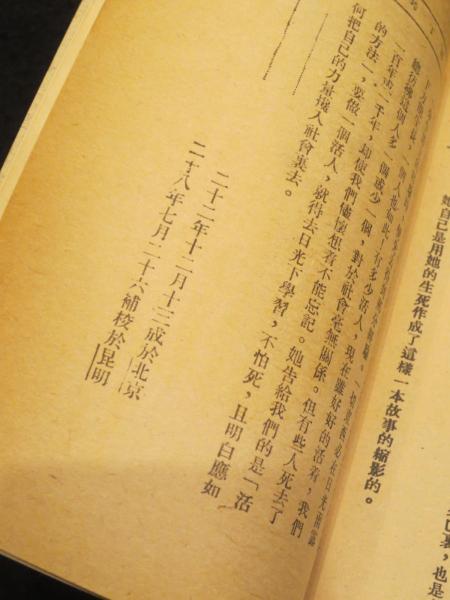 她自己是用她的生死作成了這樣一本故事的縮影的。
也是
個人也如此！有多少活人，現在雖好好的活着，我們
個人多一個或少一個，對於社會毫無關係。但有些人死去了
一百年或一千年，却使我們儘懷想着不能忘記。她告給我們的是「活
的方法」，要做一個活人，就得去日光下學習，不怕死，且明白應如
何把自己的力量擴入社會裏去。
二十二年十二月十三成於北京
二十八年七月二十六補校於昆明